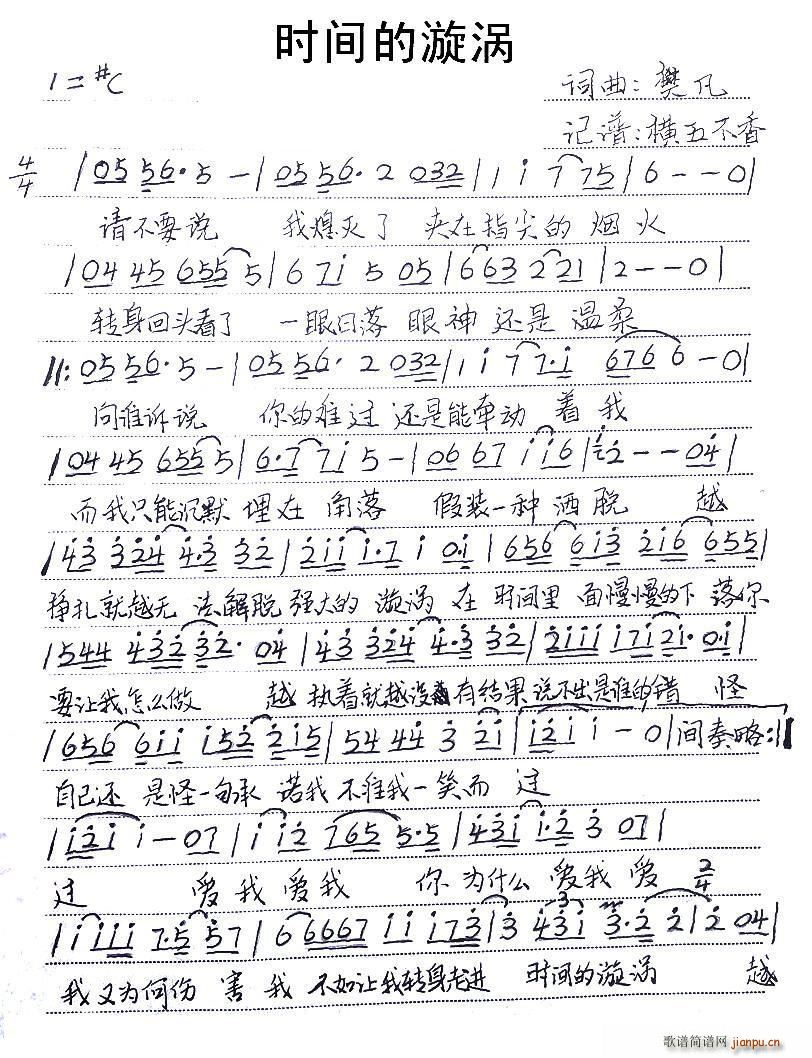 时间的漩涡
1=#C
词曲:樊凡
记谱:横五不香
4/4 |05 56·5 -|05 56·2 032|1 i 7 775|6 - - 0|
请不要说 我熄灭了 夹在指尖的 烟火
|04 45 655 5|6 7i 5 05|663 2 21|2 - - 0|
转身回头看了 一眼日落 眼神 还是 温柔
||:05 56·5 -|05 56·2 032|1 i 7 7·i 6766 - 0|
向谁诉说 你的难过 还是能牵动 着我
|04 45 655 5|6·7 7i 5 -|06 67 i i6|2 - - 04|
而我只能沉默 埋在 角落 假装一种 洒脱 越
|43 324 4·3 32|2ii i·7 i 0·i|656 6i3 2i6 655|
挣扎就越无 法解脱 强大的 漩涡 在 时间里 面慢慢的下 落你
|544 432 32· 04|43 324 4·3 32|2iii i7i 2i· 0i|
要让我怎么做 越 执着就越没有结果 说不出是谁的错 怪
|656 6ii i52 2i5|54 44 3 2i|i2i i - 0|间奏略:||
自己还 是怪一句承 诺我 不难我一笑而 过
|i2i i - 07|i i2 765 5·5|43i i·2 3 07|
过 爱我爱我 你为什么 爱我 爱 2/4
|i i iii 7·5 57|6 6667 i i i73|3 43i 3·2 2|2 04|
我又为何伤 害 我 不如让我转身走进 时间的漩涡 越
歌谱简谱网
jianpu.cn